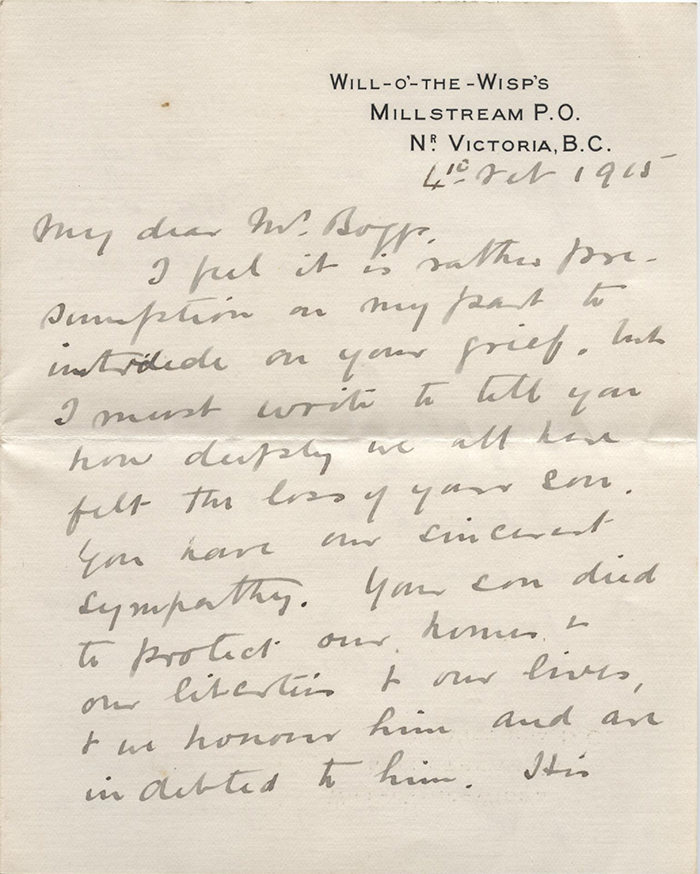 WILL-O'-THE-WISP'S
MILLSTREAM P.O.
NR VICTORIA, B.C.
1915
My dear Mr. Boggs,
I feel it is rather pre-
sumption on my part to
intrude on your grief, but
I must write to tell you
how deeply we all have
felt the loss of your son.
You have our sincerest
sympathy. Your son died
to protect our homes &
our liberties & our lives,
& we honour him and are
indebted to him. His